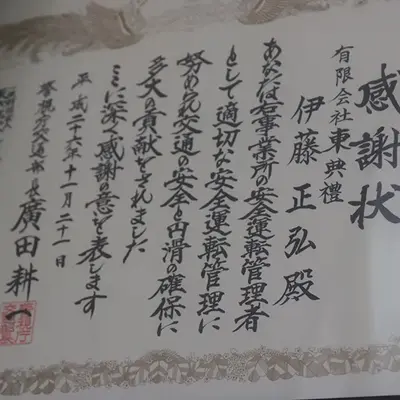 感謝状
有限会社東典禮
伊藤正弘殿
あなたは右事業所の安全運転管理者
として適切な安全運転管理に
努められ交通の安全と円滑の確保に
多大の貢献をされました
ここに深く感謝の意を表します
平成二十六年十一月二十一日
警視庁交通部長 廣田耕一